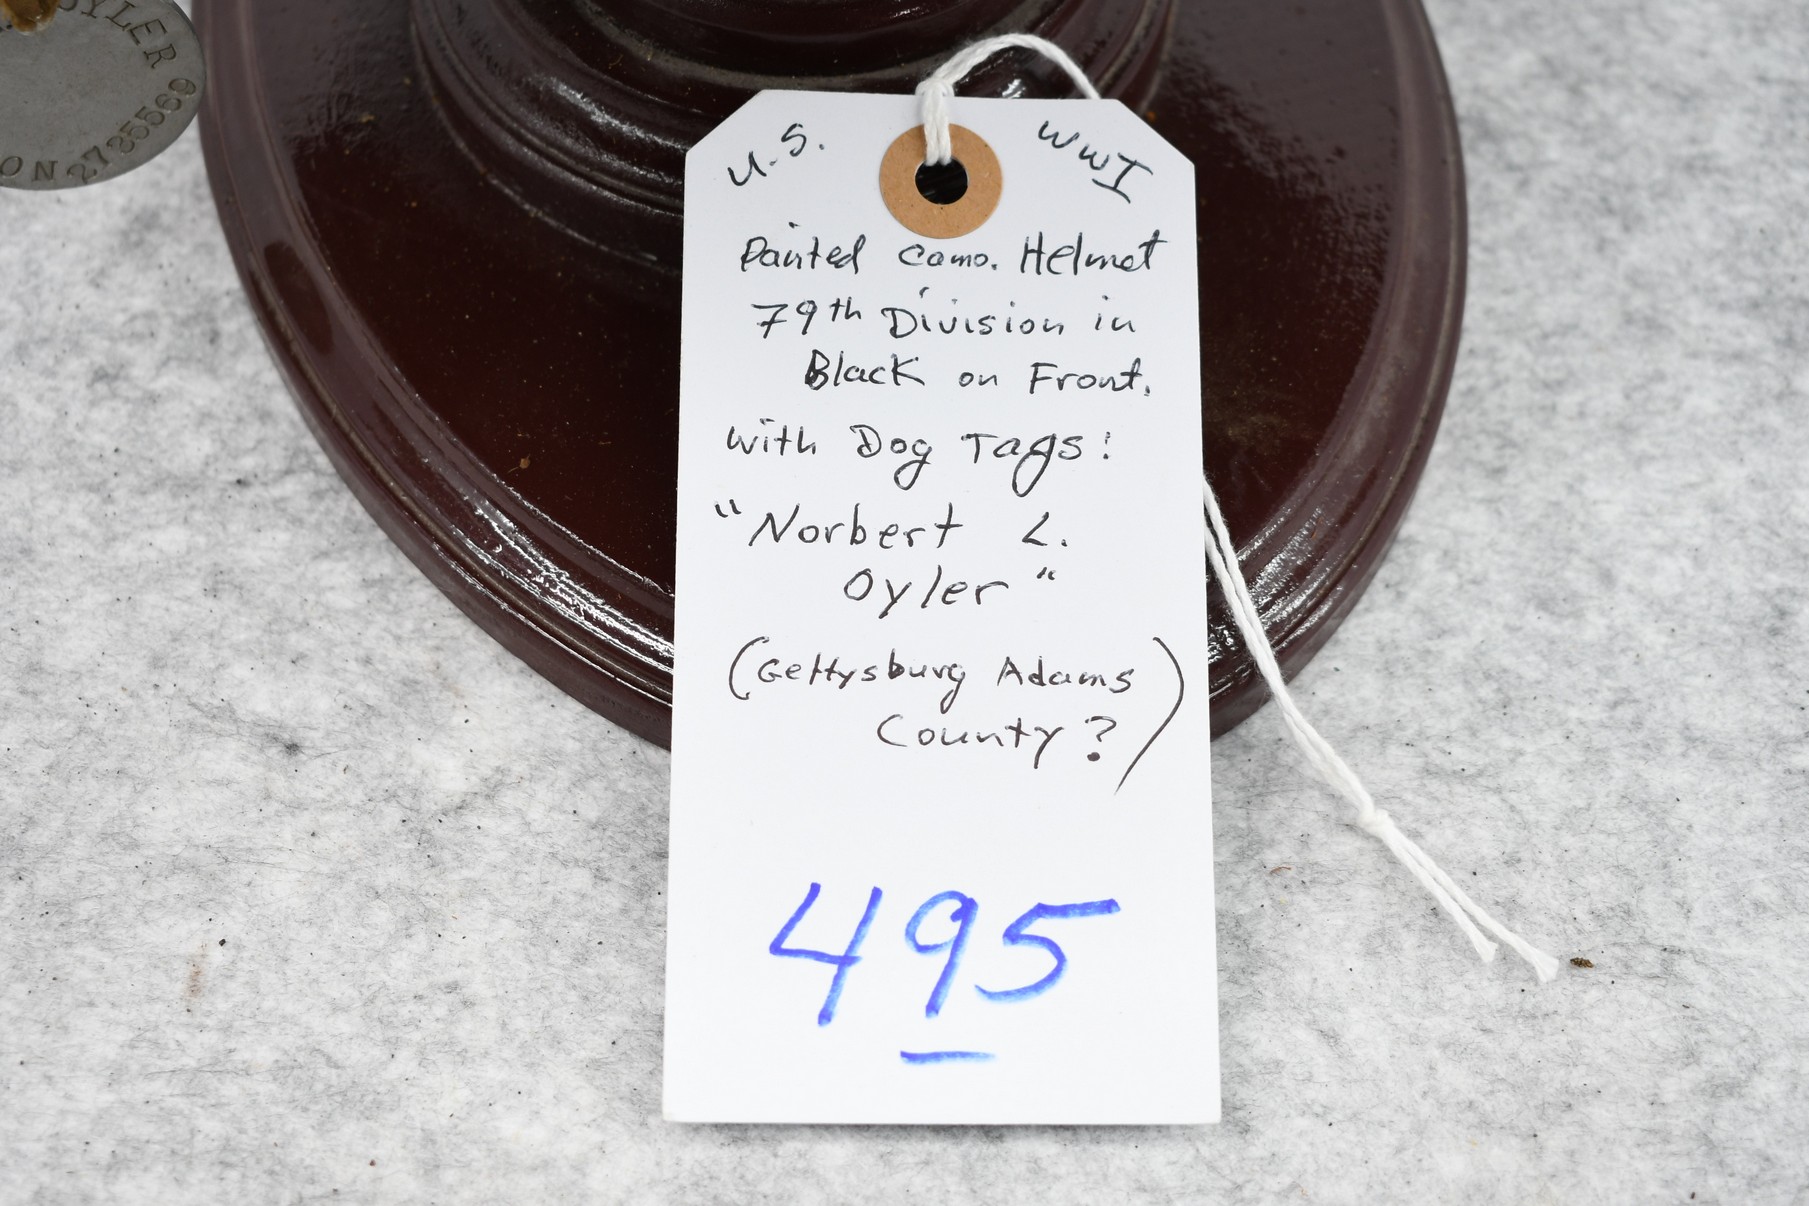 OYLER
ON 2735569
U.S. WWI
Painted Camo. Helmet
79th Division in
Black on Front.
with Dog Tags:
"Norbert L.
Oyler"
(Gettysburg Adams
County?)
495